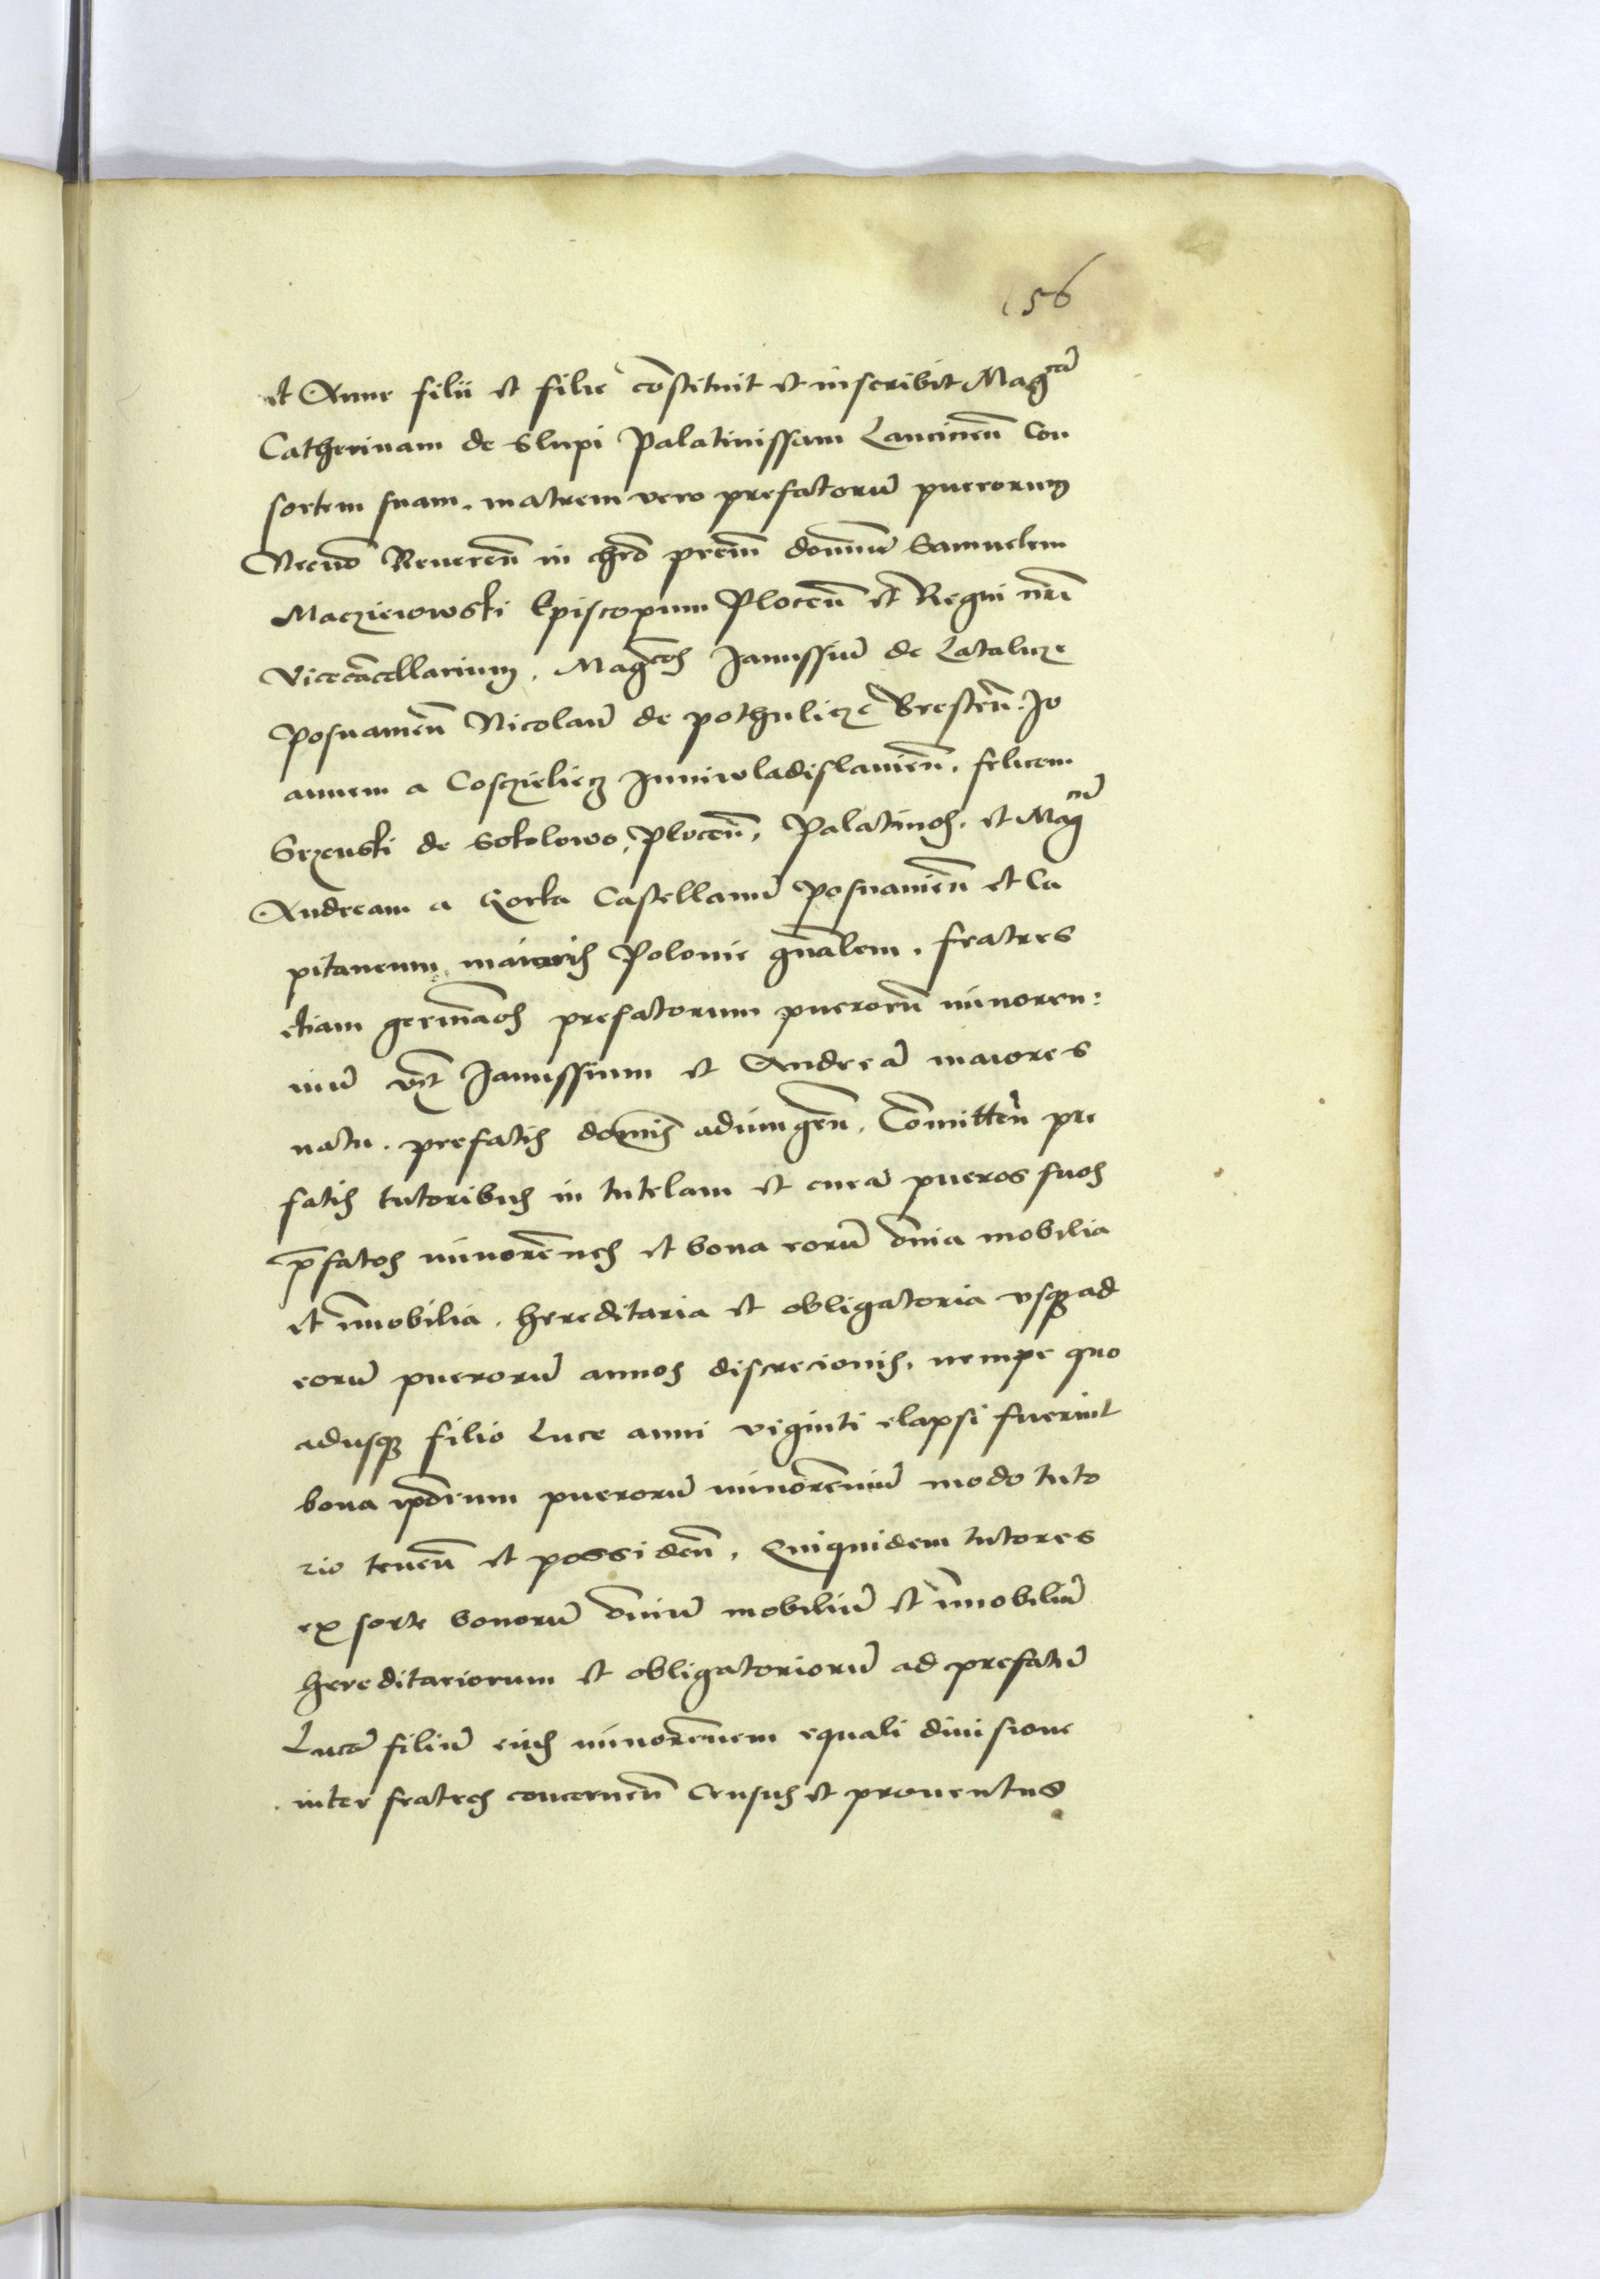 156
et Anne filii et filie cōstituit et inscribit Magcā
Catherinam de Slupi Palatinissam Lancicieñ Con
sortem suam. matrem vero prefatorū puerorum
Necnō Reuereñ in chrō prem̄ domnū Samuelem
Maczieiowski Episcopum Ploceñ et Regni nrī
Vicecācellarium, Magcos Janussiū de Latalicze
Posnanieñ Nicolaū de pothulicze Bresteñ. Jo
annem a Coszcieliecz Junniwladislauieñ, felicem
Srzenski de Sokolowo, Ploceñ, Palatinos. et Magcū
Andream a Gorka Castellanū Posnanieñ et Ca
pitaneum maioris Polonie gnālem, fratres
etiam germāos prefatorum puerorū minoren:
niū vz̄ Janussium et Andreā maiores
natu. prefatis domīs adiungeñ, Committeñ pre
fatis tutoribus in tutelam et curā pueros suos
p̄fatos minorēnes et bona eorū ōnia mobilia
et īmobilia, hereditaria et obligatoria vsqȝ ad
eorū puerorū annos discrecionis, nempe quo
adusqȝ filio Luce anni viginti elapsi fuerint
bona ipōrum puerorū minorēniū modo tuto
rio teneñ et possideñ, Quiquidem tutores
ex sorte bonorū ōniū mobiliū et īmobiliū
hereditariorum et obligatoriorū ad prefatū
Lucā filiū eius minorēnem equali diuisione
inter fratres concerneñ Census et prouentus